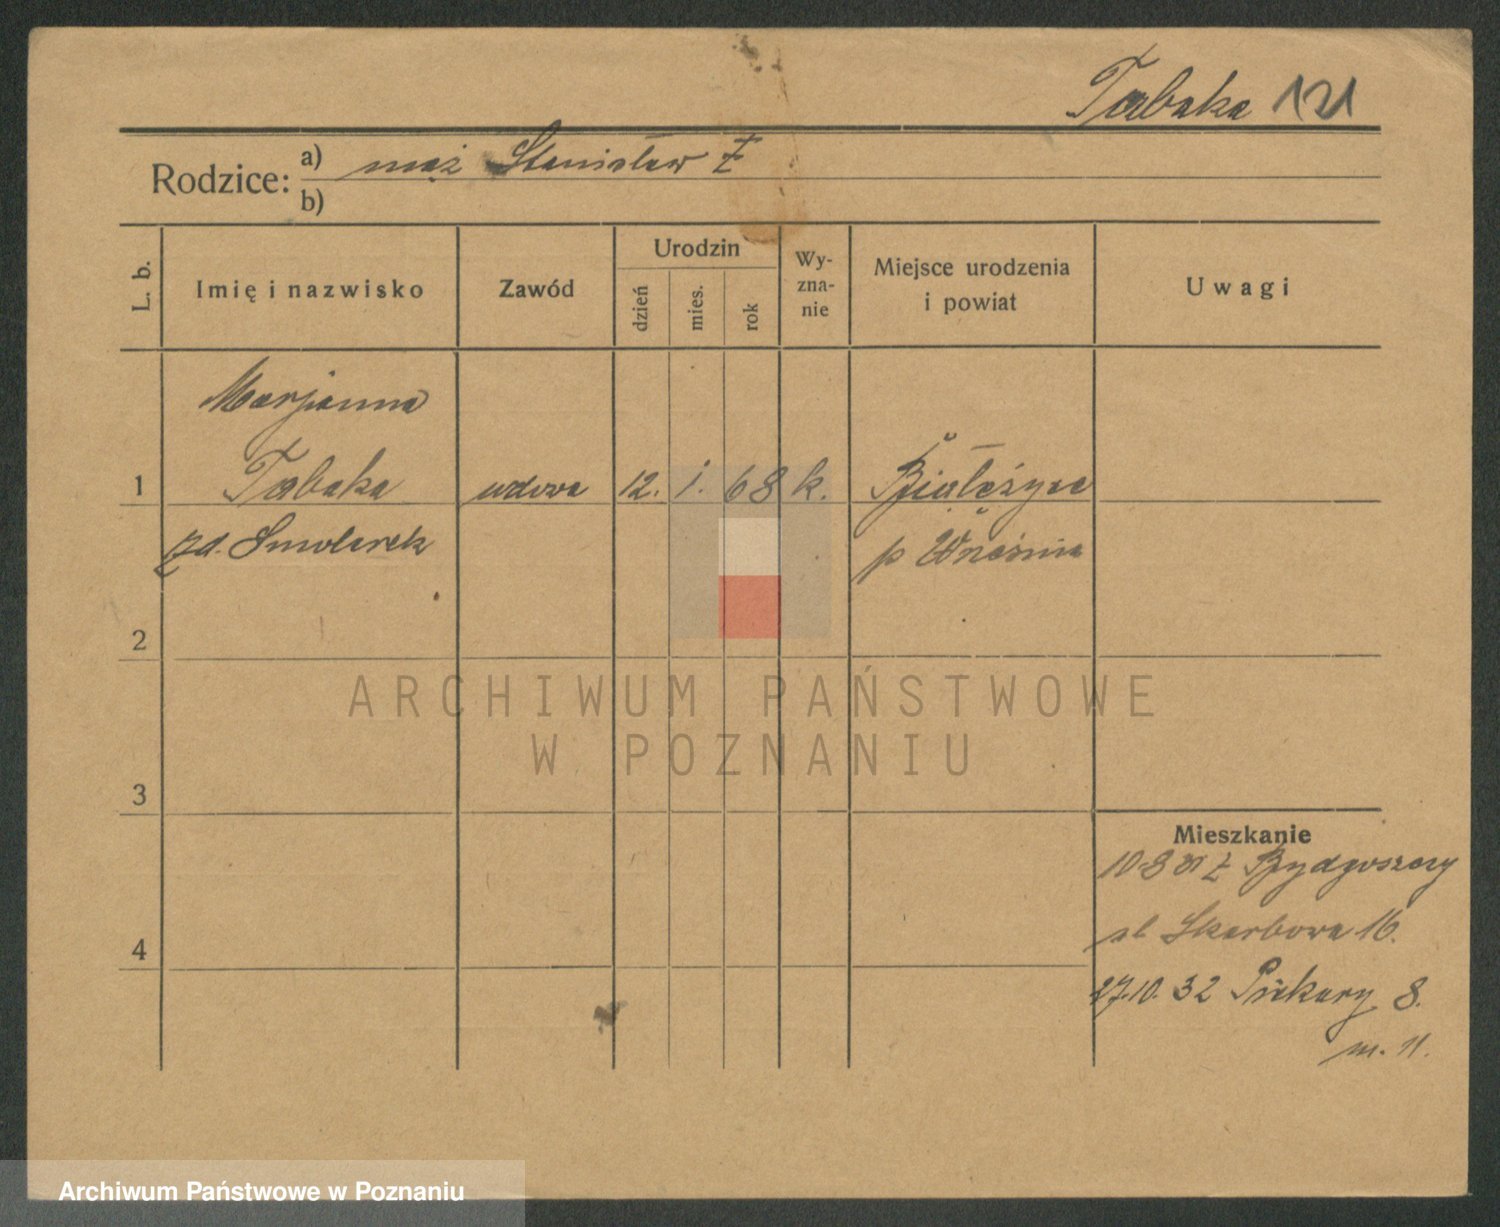 Tabaka 121
Rodzice: a) mąż Stanisław Ż
b)
L. b. Imię i nazwisko Zawód Urodzin dzień mies. rok Wy-zna-nie Miejsce urodzenia i powiat Uwagi
Marjanna
1 Tabaka wdowa 12. 1. 68 k. Białężyce
zd. Smolarek p Września
2
3
4
Mieszkanie
10.8 31 z Bydgoszczy
ul. Skarbowa 16.
27.10. 32 Piekary 8.
m. 11.
ARCHIWUM PAŃSTWOWE
W POZNANIU
Archiwum Państwowe w Poznaniu